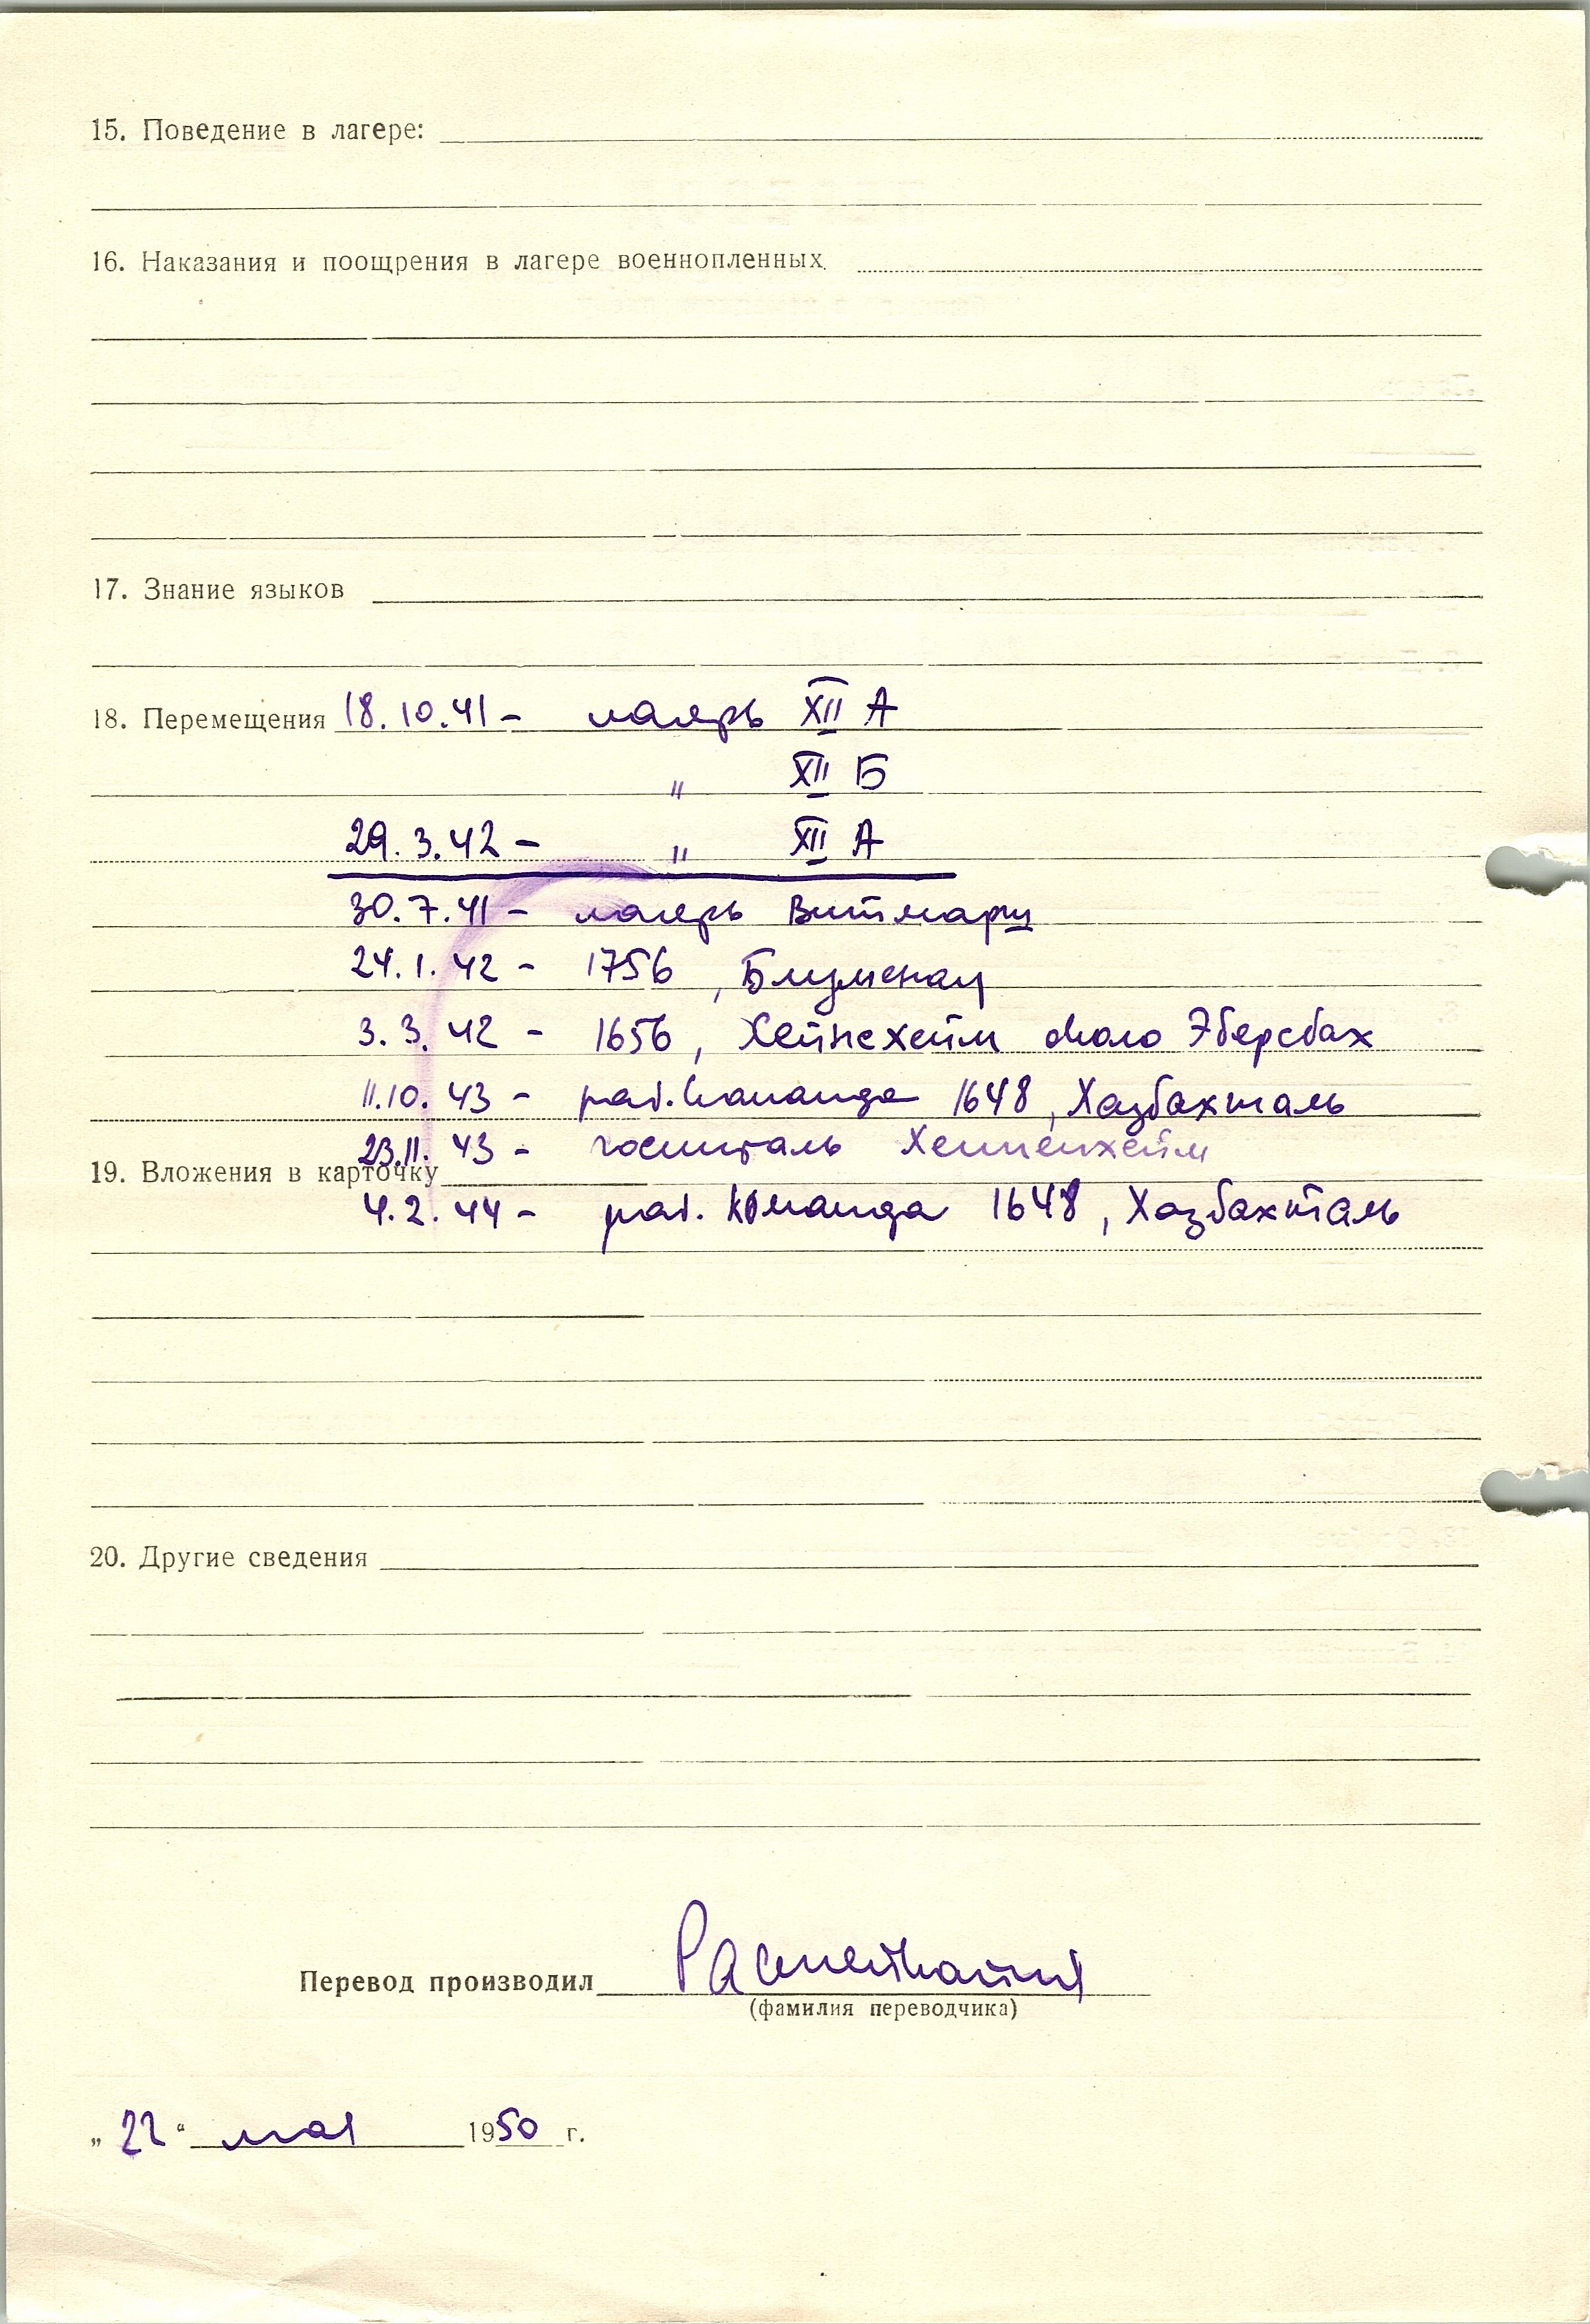 15. Поведение в лагере:
16. Наказания и поощрения в лагере военнопленных.
17. Знание языков
18. Перемещения 18.10.41 – лагерь XII А
" XII Б
29.3.42 – " XII А
30.7.41 – лагерь Витмарш
24.1.42 – 1756, Блуменау
3.3.42 – 1656, Хейнсхейм около Эберсбах
11.10.43 – раб. команда 1648, Хазбахталь
23.11.43 – госпиталь Хеппенхейм
19. Вложения в карточку
4.2.44 – раб. команда 1648, Хазбахталь
20. Другие сведения
Перевод производил
(фамилия переводчика)
„ 22 “ мая 1950 г.